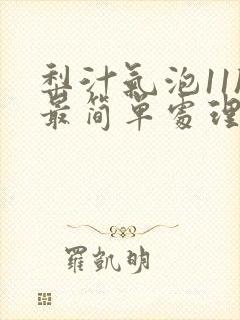 梨汁氣泡11
最簡單處理
羅凱明